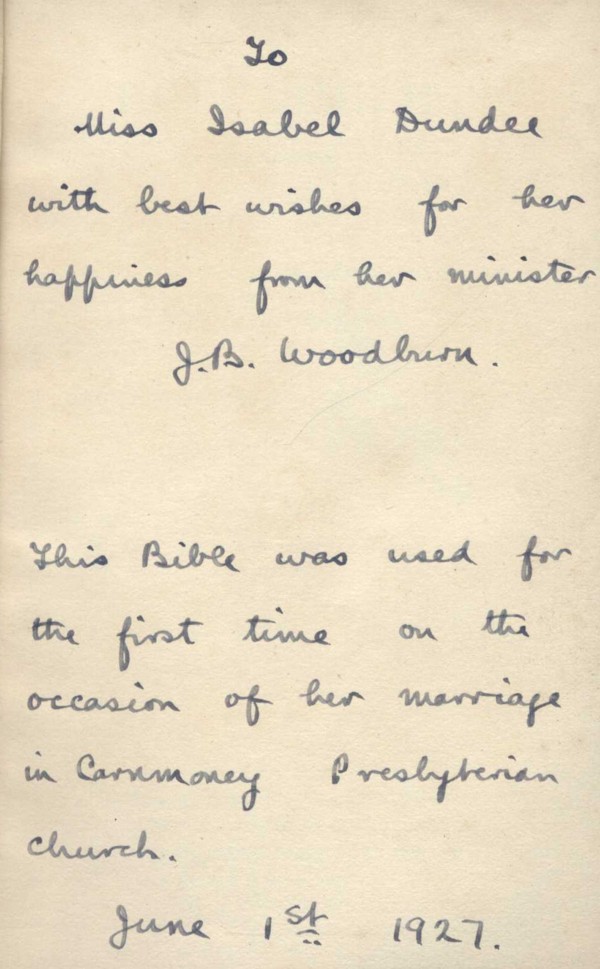 To
Miss Isabel Dundee
with best wishes for her
happiness from her minister
J.B. Woodburn.
This Bible was used for
the first time on the
occasion of her marriage
in Carnmoney Presbyterian
church.
June 1st 1927.